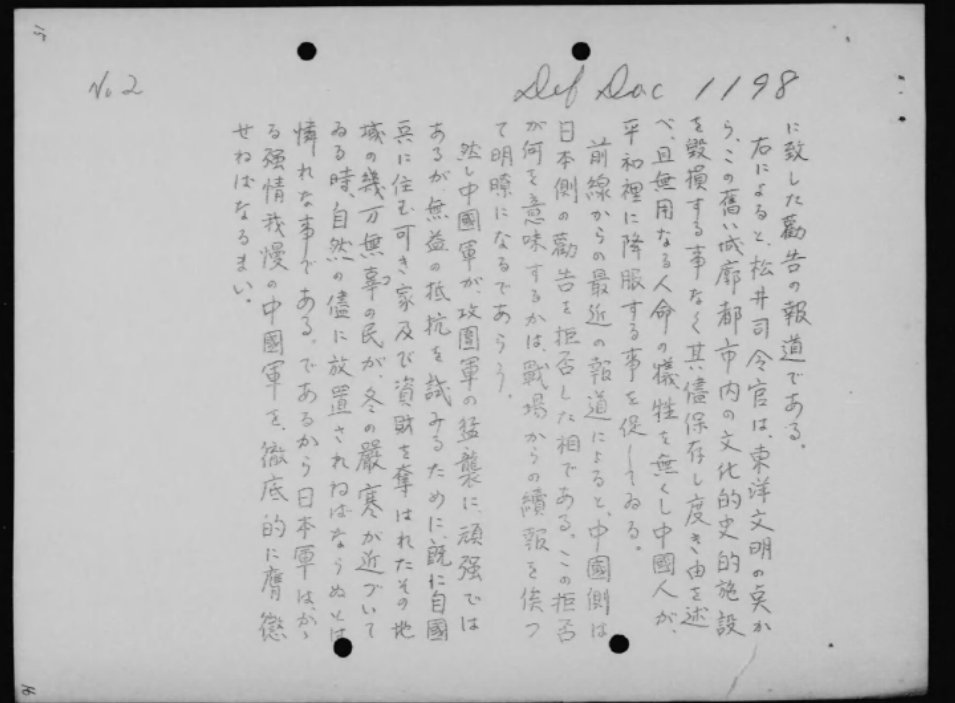 No 2
Def Doc 1198
に致した勸告の報道である。
右によると、松井司令官は、東洋文明の点か
ら、この舊い城廓都市内の文化的史的施設
を毀損する事なく其儘保存し度き由を述
べ、且無用なる人命の犠牲を無くし中國人が、
平和裡に降服する事を促してゐる。
前線からの最近の報道によると、中國側は
日本側の勸告を拒否した相である。この拒否
が何を意味するかは、戰場からの續報を俟つ
て明瞭になるであらう。
然し中國軍が、攻圍軍の猛襲に、頑强では
あるが、無益の抵抗を試みるために、既に自國
兵に住む可き家及び資財を奪はれたその地
域の幾万無辜の民が、冬の嚴寒が近づいて
ゐる時、自然の儘に放置されねばならぬとは
憐れな事である。であるから日本軍は、かゝ
る强情我慢の中國軍を、徹底的に膺懲
せねばなるまい。